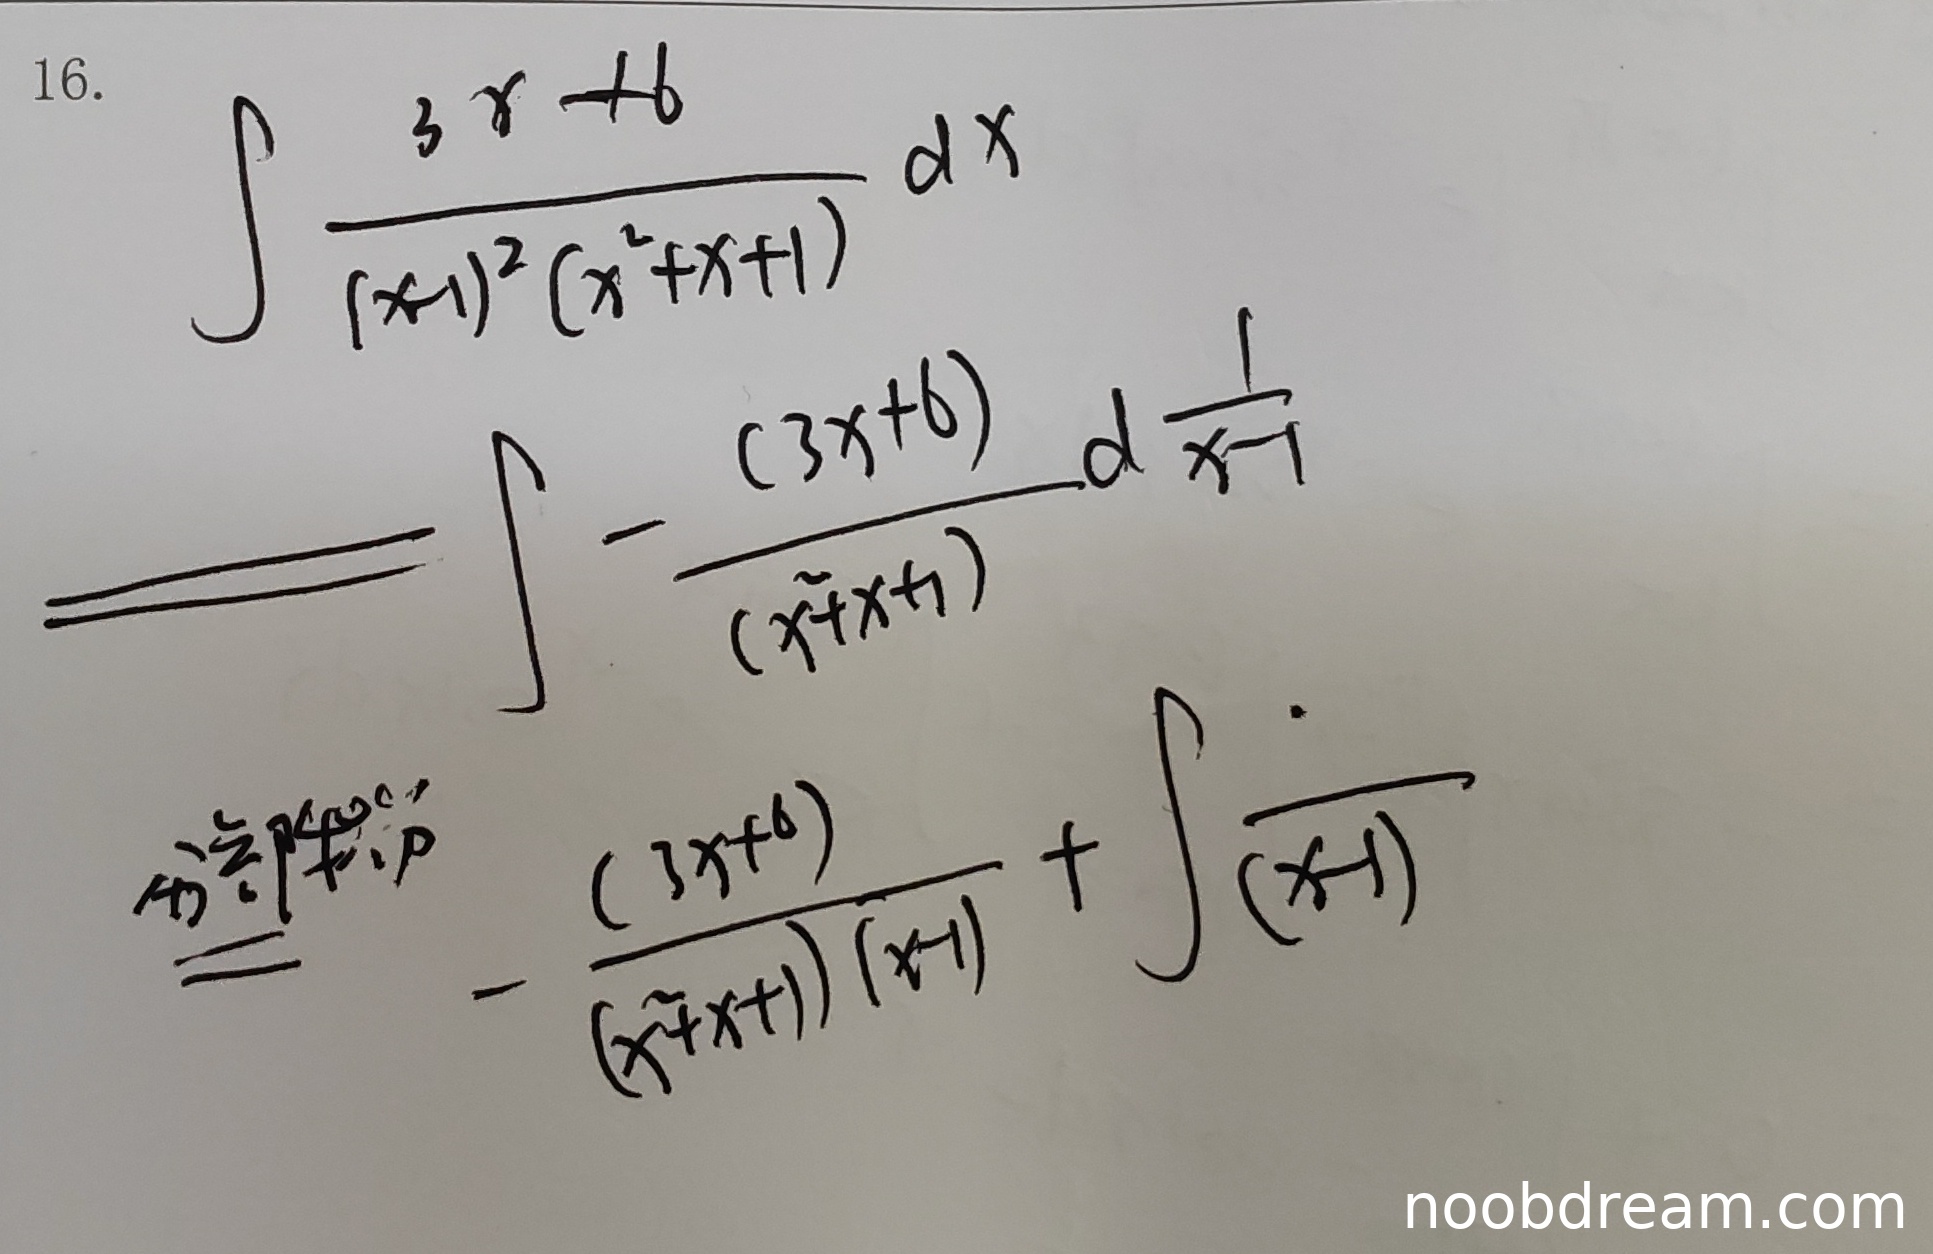 16.
∫ (3x+6)/((x-1)²(x²+x+1)) dx
= ∫ -(3x+6)/(x²+x+1) d 1/(x-1)
分部积分 = -(3x+6)/((x²+x+1)(x-1)) + ∫ ·/(x-1)
noobdream.com